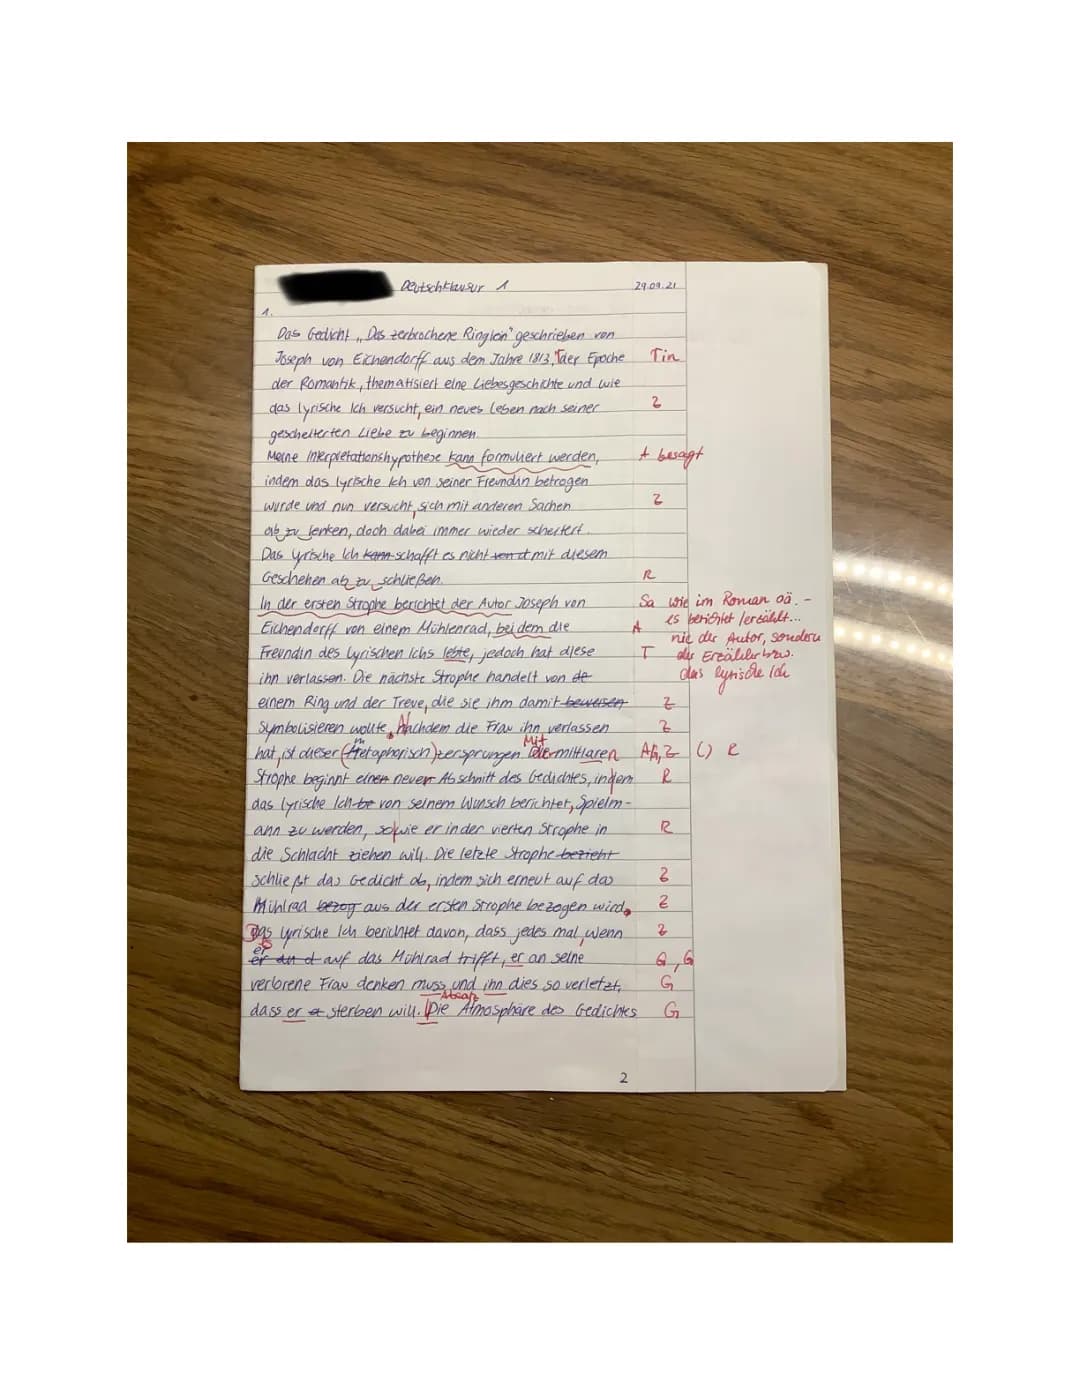 Deutschklausur 1 29.09.21
1.
Das Gedicht „Das zerbrochene Ringlein" geschrieben von
Joseph von Eichendorff aus dem Jahre 1813, der Epoche Tin
der Romantik, thematisiert eine Liebesgeschichte und wie
das lyrische Ich versucht, ein neues Leben nach seiner Z
gescheiterten Liebe zu beginnen.
Meine Interpretationshypothese kann formuliert werden, A besagt
indem das lyrische Ich von seiner Freundin betrogen
wurde und nun versucht, sich mit anderen Sachen Z
ab zu lenken, doch dabei immer wieder scheitert.
Das lyrische Ich kann schafft es nicht mit diesem
Geschehen ab zu schließen. R
In der ersten Strophe berichtet der Autor Joseph von Sa wie im Roman oä. -
es berichtet/erzählt...
Eichendorff von einem Mühlenrad, bei dem die A nie der Autor, sondern
Freundin des lyrischen Ichs lebte, jedoch hat diese T der Erzähler bzw.
das lyrische Ich
ihn verlassen. Die nächste Strophe handelt von de
einem Ring und der Treue, die sie ihm damit beweisen Z
Symbolisieren wollte. Nachdem die Frau ihn verlassen Z
hat, ist dieser (metaphorisch) zersprungen. Mit Die mittlaren A, Z () R
Strophe beginnt einen neuen Abschnitt des Gedichtes, indem R
das lyrische Ich be von seinem Wunsch berichtet, Spielm-
ann zu werden, so wie er in der vierten Strophe in R
die Schlacht ziehen will. Die letzte Strophe bezieht
schließt das Gedicht ab, indem sich erneut auf das Z
Mühlrad bezog aus der ersten Strophe bezogen wird. Z
Das lyrische Ich berichtet davon, dass jedes mal, wenn Z
es
er auf das Mühlrad trifft, er an seine G, G
verlorene Frau denken muss und ihn dies so verletzt, G
Absatz
dass er sterben will. Die Atmosphäre des Gedichtes G
2